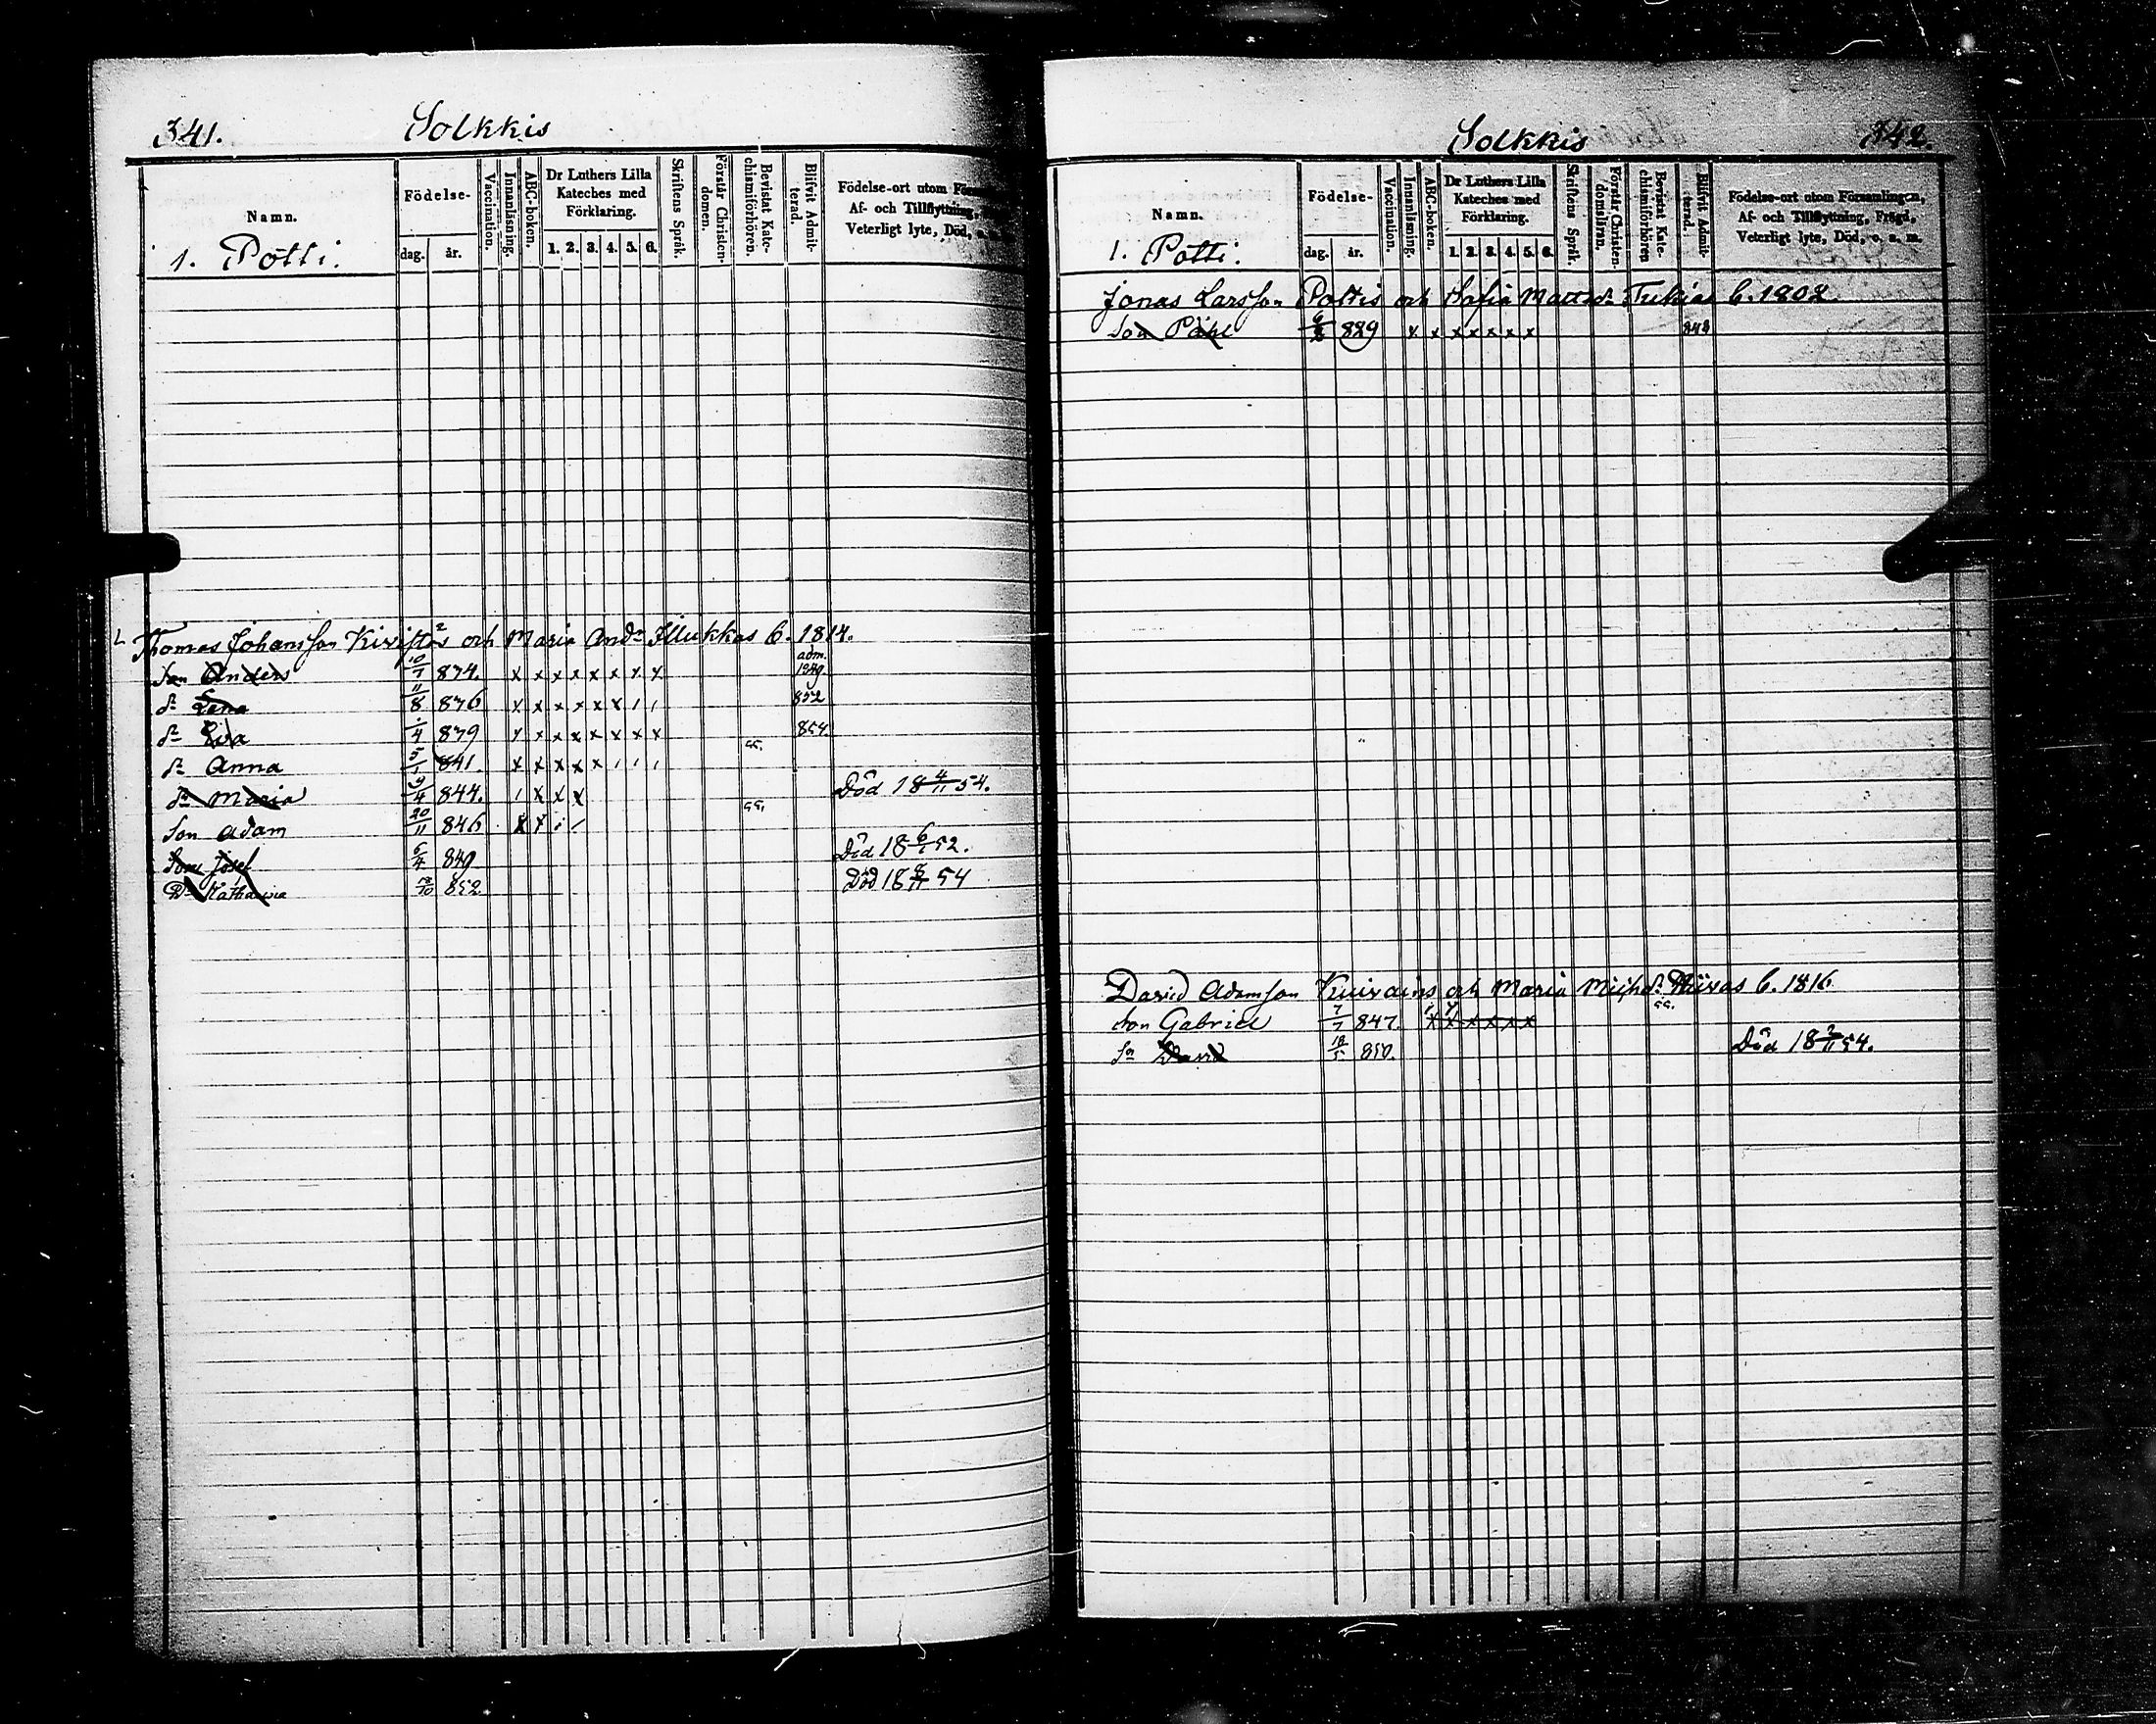 341.
Solkkis
Namn.
1. Pötti.
Födelse-
dag. år.
Vaccination.
Innanläsning.
ABC-boken.
Dr Luthers Lilla
Kateches med
Förklaring.
1. 2. 3. 4. 5. 6.
Skriftens Språk.
Förstår Christen-
domen.
Bevistat Kate-
chismiförhören.
Blifvit Admit-
terad.
Födelse-ort utom
Af- och Tillflyttning,
Veterligt lyte, Död,
Thomas Johansson och Maria And: Illukkas b. 1814.
Son Anders 10/7 834. x x x x x x x x adm. 1849.
dr Lena 11/8 836 x x x x x x 852
dr Eva 4 839 x x x x x x x x 854.
dr Anna 5/1 841. x x x x x 55.
dr Maria 9/4 844. x x x Död 18 4/11 54.
Son Adam 20/11 846 x x 55.
Son Josef 6/4 849 Död 18 52.
Dr Katharina /10 852 Död 18 54
342.
Solkkis
Namn.
1. Pötti.
Födelse-
dag. år.
Vaccination.
Innanläsning.
ABC-boken.
Dr Luthers Lilla
Kateches med
Förklaring.
1. 2. 3. 4. 5. 6.
Skriftens Språk.
Förstår Christen-
domsläran.
Bevistat Kate-
chismiförhören
Blifvit Admit-
terad.
Födelse-ort utom Församlingen,
Af- och Tillflyttning, Frägd,
Veterligt lyte, Död, o. s. m.
Jonas Larsson Pöttis och Sofia Matts dr b. 1802.
Son Påhl 829 x x x x x x x 848
David Adamson och Maria b. 1816
Son Gabriel 7/7 847. x x x x x x 55.
Sn David 18/5 850. Död 18 2/11 54.